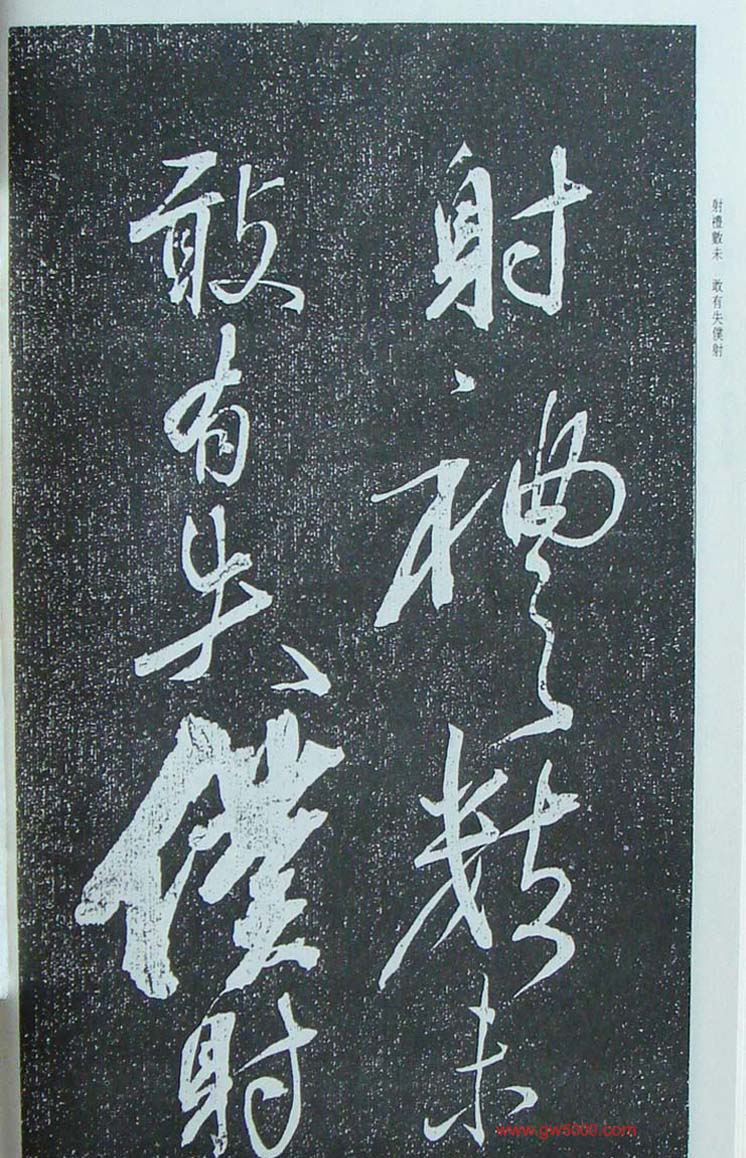 射禮數未
敢有失僕射
射禮數未 敢有失僕射
www.gw5000.com